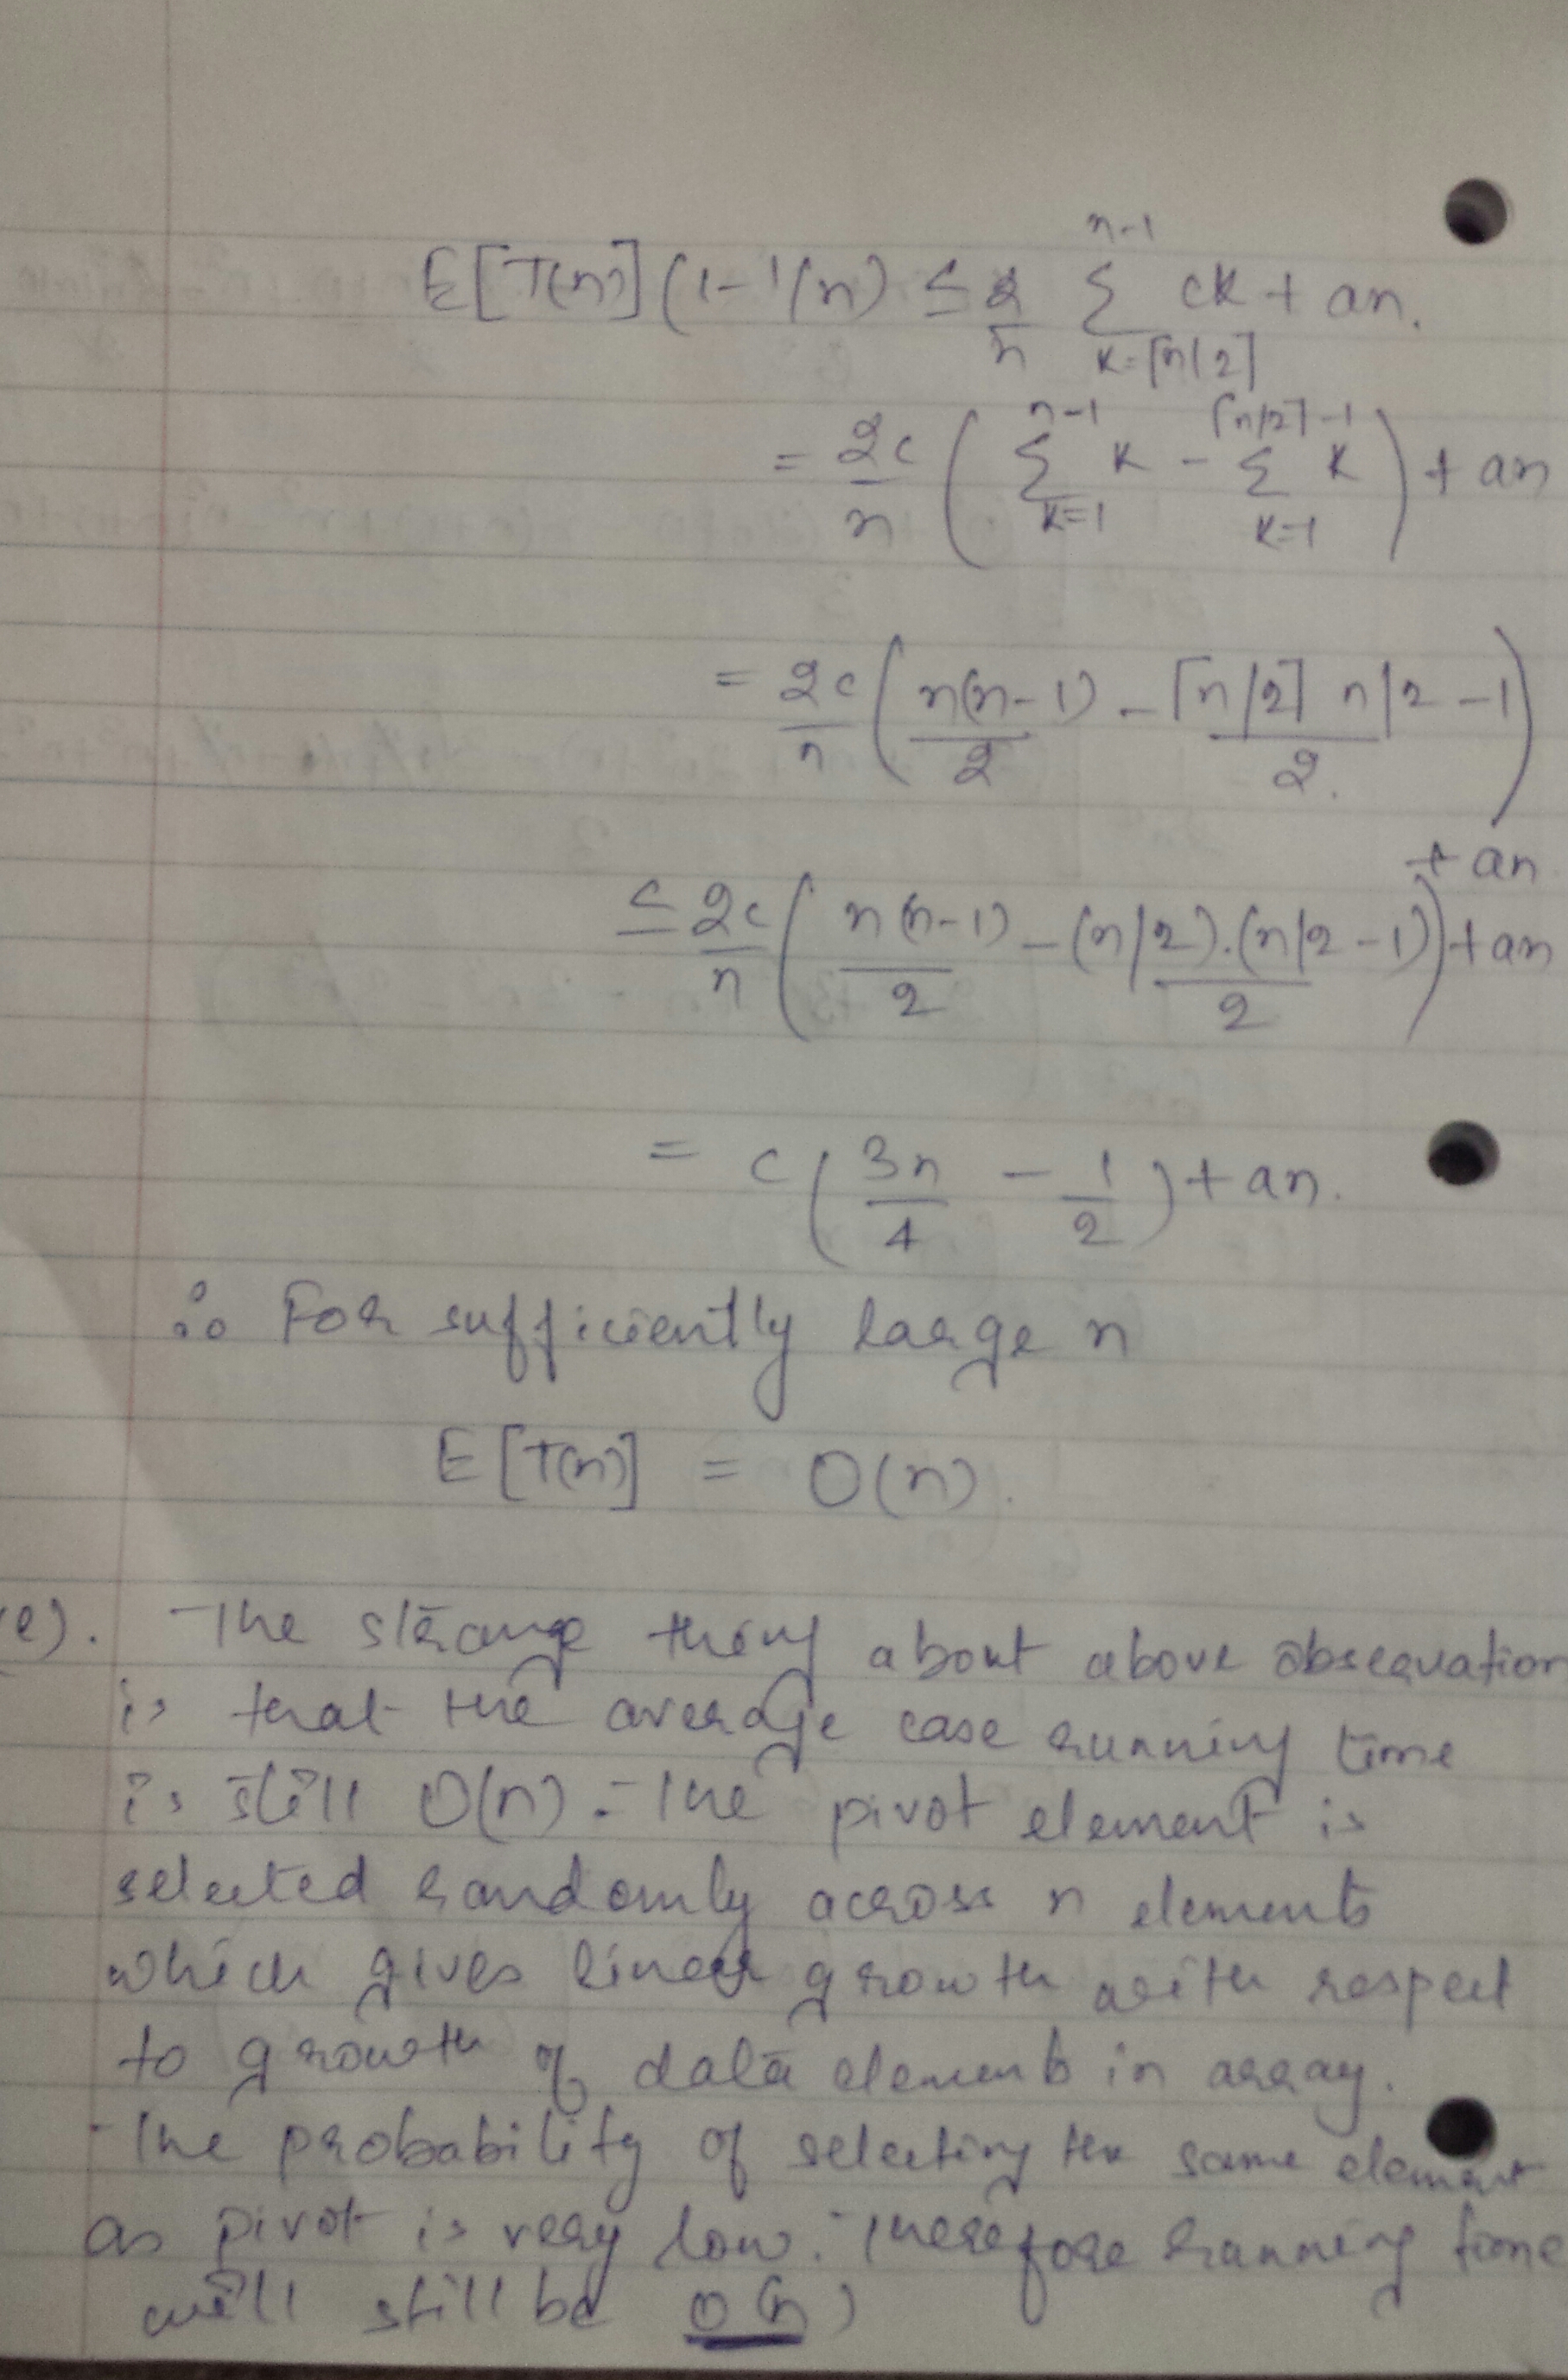 E[T(n)](1-1/n) ≤ 2/n Σ_{k=⌈n/2⌉}^{n-1} ck + an.
= 2c/n ( Σ_{k=1}^{n-1} k - Σ_{k=1}^{⌈n/2⌉-1} k ) + an
= 2c/n ( n(n-1)/2 - ⌈n/2⌉ n/2-1 / 2. )
+ an
≤ 2c/n ( n(n-1)/2 - (n/2).(n/2-1)/2 ) + an
= c ( 3n/4 - 1/2 ) + an.
∴ For sufficiently large n
E[T(n)] = O(n).
e). The strange thing about above observation
is that the average case running time
is still O(n). The pivot element is
selected randomly across n elements
which gives linear growth with respect
to growth of data elements in array.
The probability of selecting the same element
as pivot is very low. Therefore running time
will still be O(n)